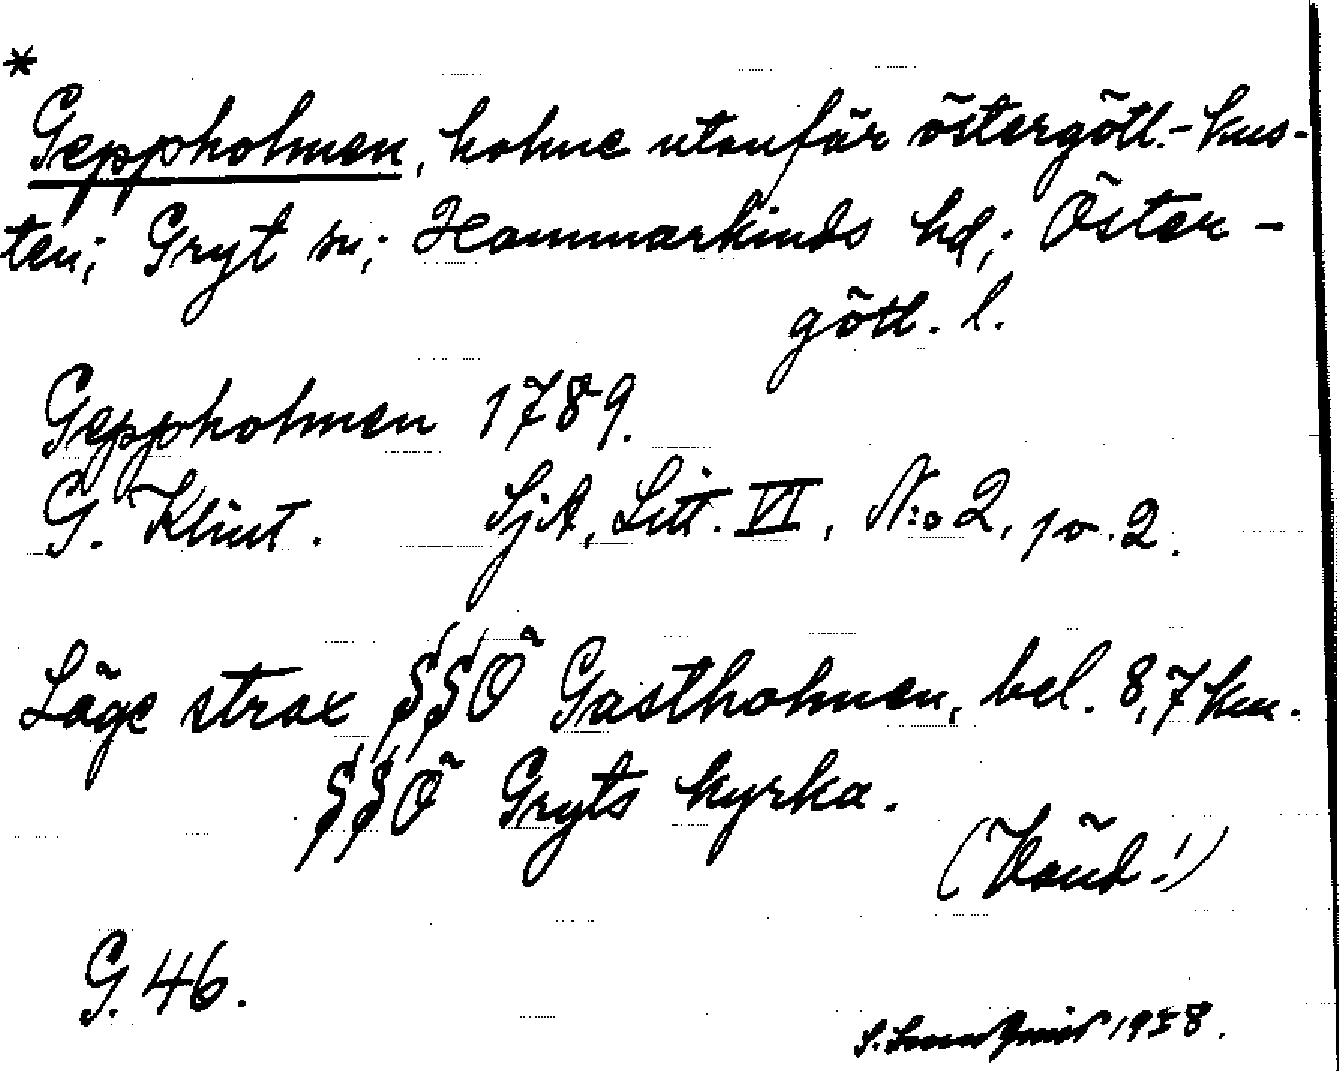 *
Geppholmen, holme utanför östergötl.-kus-
ten; Gryt sn; Hammarkinds hd; Öster-
götl. l.
Geppholmen 1789.
G. Klint. SjA, Litt. VI, N:o 2, p. 2.
Läge strax SSÖ Gastholmen, bel. 8,7 km.
SSÖ Gryts kyrka.
(Vänd!)
G. 46.
S. 1938.